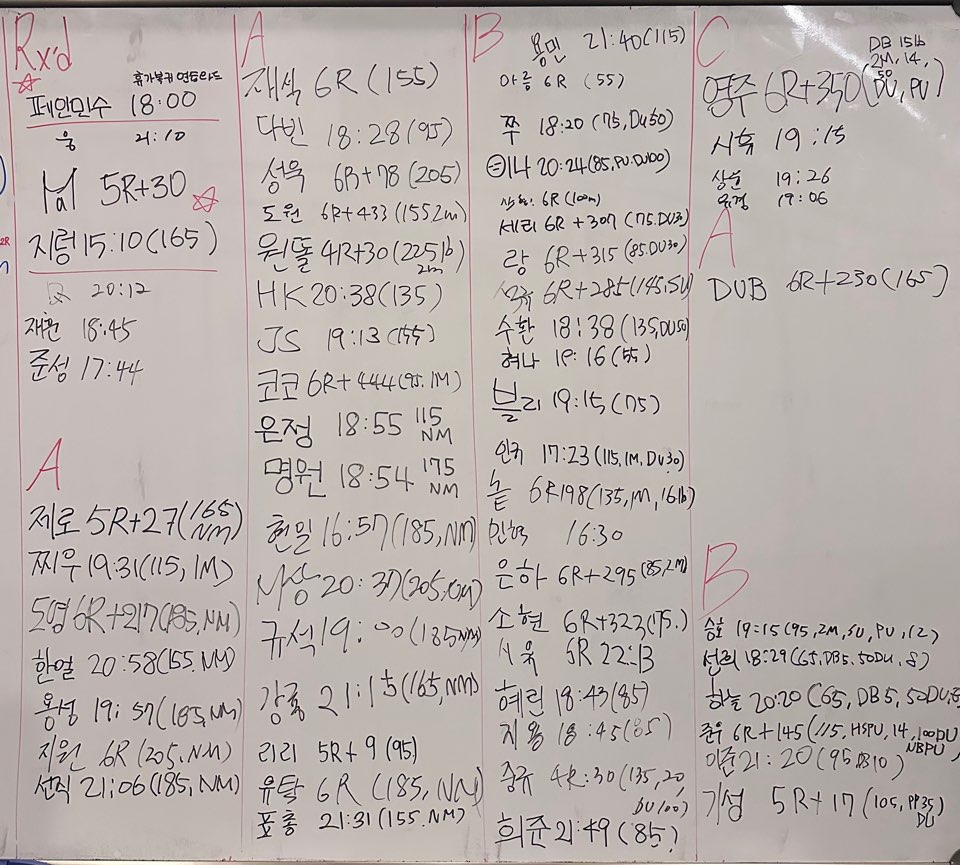 Rx'd
휴가복귀 연습라드
페안민수 18:00
웅 21:10
5R+30
지렁 15:10 (165)
20:12
재훈 18:45
준성 17:44
A
제로 5R+27 (165 NM)
찌우 19:31 (115, 1M)
도영 6R+217 (185, NM)
한얼 20:58 (155. NM)
용성 19:57 (185, NM)
지원 6R (205, NM)
선식 21:06 (185, NM)
A
재석 6R (155)
다빈 18:28 (95)
성욱 6R+78 (205)
도원 6R+433 (155 2m)
원똘 4R+30 (225lb 2m)
HK 20:38 (135)
JS 19:13 (155)
코코 6R+444 (95. 1M)
은정 18:55 115 NM
명원 18:54 175 NM
현일 16:57 (185, NM)
20:37 (205,
규석 19:00 (185 NM)
21:15 (165, NM)
리리 5R+9 (95)
유탁 6R (185, NM)
표총 21:31 (155. NM)
B
용민 21:40 (115)
아름 6R (55)
쭈 18:20 (75, DU50)
20:24 (85, PU. DU100)
6R (100m)
세리 6R+307 (75. DU30)
랑 6R+315 (85. DU30)
6R+285 (145, SU)
수환 18:38 (135, DU50)
혀나 19:16 (55)
블리 19:15 (75)
인귀 17:23 (115, 1M, DU30)
놑 6R198 (135, 1M, 16lb)
민혁 16:30
은하 6R+295 (85, 2M)
소현 6R+323 (75.)
시욱 6R 22:13
혜린 18:43 (85)
지용 18:45 (85)
중규 4R:30 (135, 20, DU100)
희준 21:49 (85)
C
DB 15lb
2M, 14,
50
영주 6R+350 (DU, PU)
시훅 19:15
상순 19:26
19:06
A
DUB 6R+230 (165)
B
승호 19:15 (95, 2M, SU, PU, 12)
선희 18:29 (65, DB5. 50DU, 8)
하늘 20:20 (65, DB5, 50DU,
준우 6R+145 (115, HSPU, 14, 100DU NBPU)
이준 21:20 (95 DB10)
기성 5R+17 (105, PP35) DU